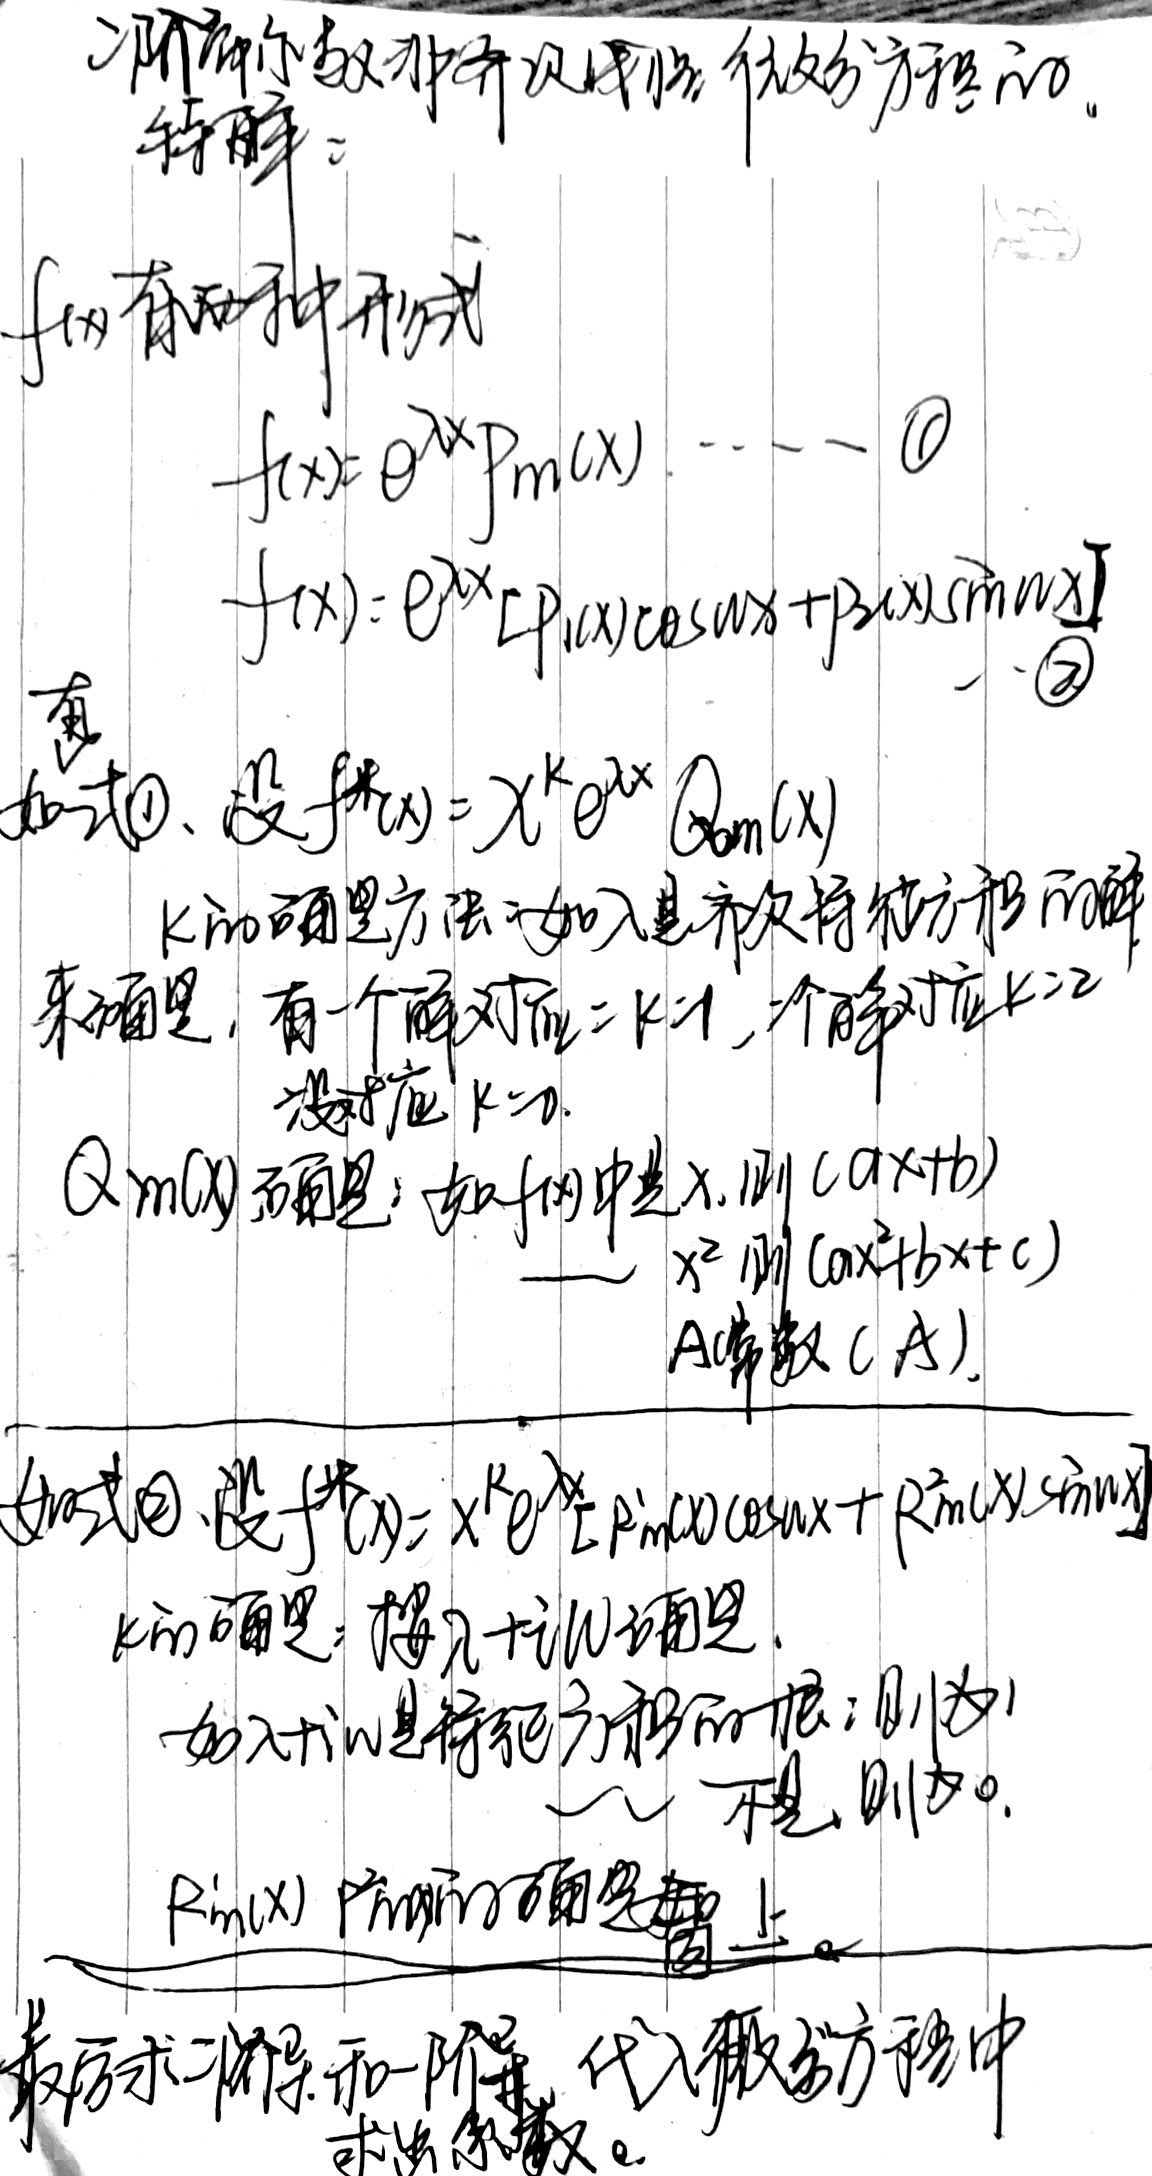 二阶常系数非齐次线性微分方程的
特解:
f(x)有两种形式
f(x)=e^{λx}Pm(x) ----- ①
f(x)=e^{λx}[P₁(x)coswx+P₂(x)sinwx]
--②
如式①、设f*(x)=x^k e^{λx} Qm(x)
k的确定方法:如λ是齐次特征方程的解
来确定,有一个解对应:k=1,二个解对应k=2
没对应 k=0.
Qm(x)确定:如f(x)中是x,则(ax+b)
—— x² 则(ax²+bx+c)
A(常数(A).
如式②、设f*(x)=x^k e^{λx}[R¹m(x)coswx+R²m(x)sinwx]
k的确定:按λ+iw确定.
如λ+iw是特征方程的根:则为1
～ 不是,则为0.
R¹m(x) R²m(x)的确定 同上。
最后求二阶导和一阶导,代入微分方程中
求出系数。